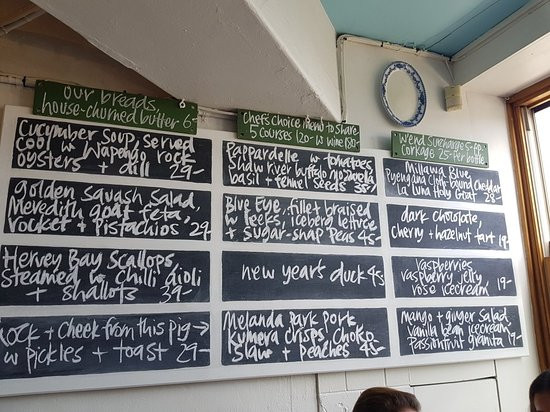 our breads,
house-churned butter 6-
6
Cucumber Soup, Served
Cool w Wapengo rock
oysters + dill 29-
golden squash salad,
Meredith goat feta,
rocket + Pistachios 29-
Hervey Bay Scallops,
Steamed w Chilli aioli
+ shallots 39-
+ Cheek from this pig →
w pickles + toast 29-
Chefs choice menu to share
5 courses 120- w wine
Pappardelle w tomatoes
Shaw river buffalo mozzarella
basil + fennel seeds 38/
Blue Eye, fillet braised
w leeks, iceberg lettuce
+ sugar-snap Peas 45-
new year's duck 45-
Melanda Park Pork
Kumera crisps, Choko
Slaw + peaches 45-
w'end surcharge 5-pp
Corkage 25-per bottle
Milawa Blue
Pyengana Cloth-bound cheddar
La Luna Holy Goat 28-
dark chocolate,
Cherry + hazelnut tart 19-
raspberries
raspberry jelly
rose icecream 19-
mango + ginger Salad
Vanilla bean icecream
Passionfruit granita 19-